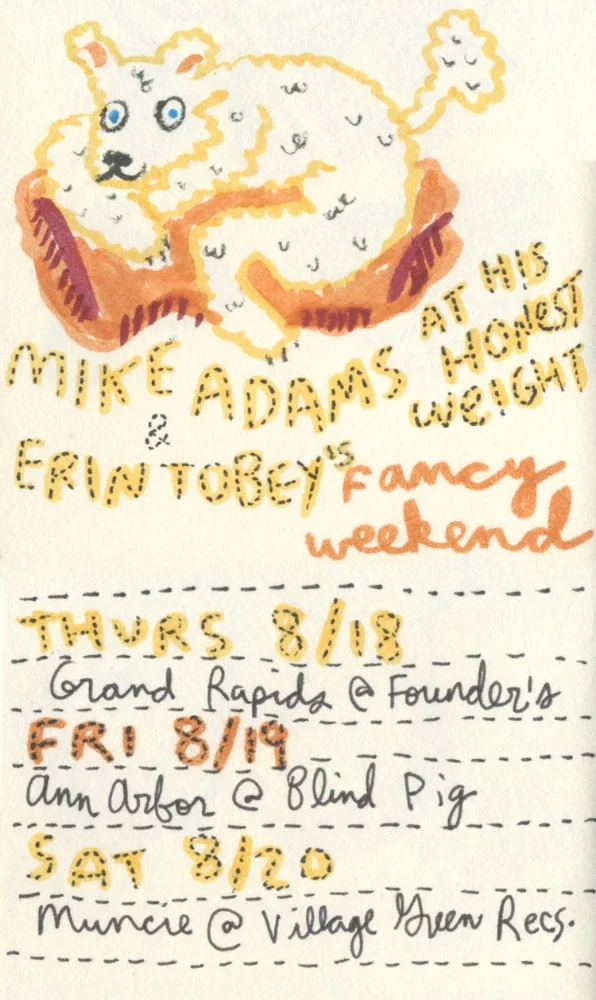 MIKE ADAMS AT HIS
HONEST
WEIGHT
&
ERIN TOBEY'S Fancy
weekend
THURS 8/18
Grand Rapids @ Founder's
FRI 8/19
Ann Arbor @ Blind Pig
SAT 8/20
Muncie @ Village Green Recs.